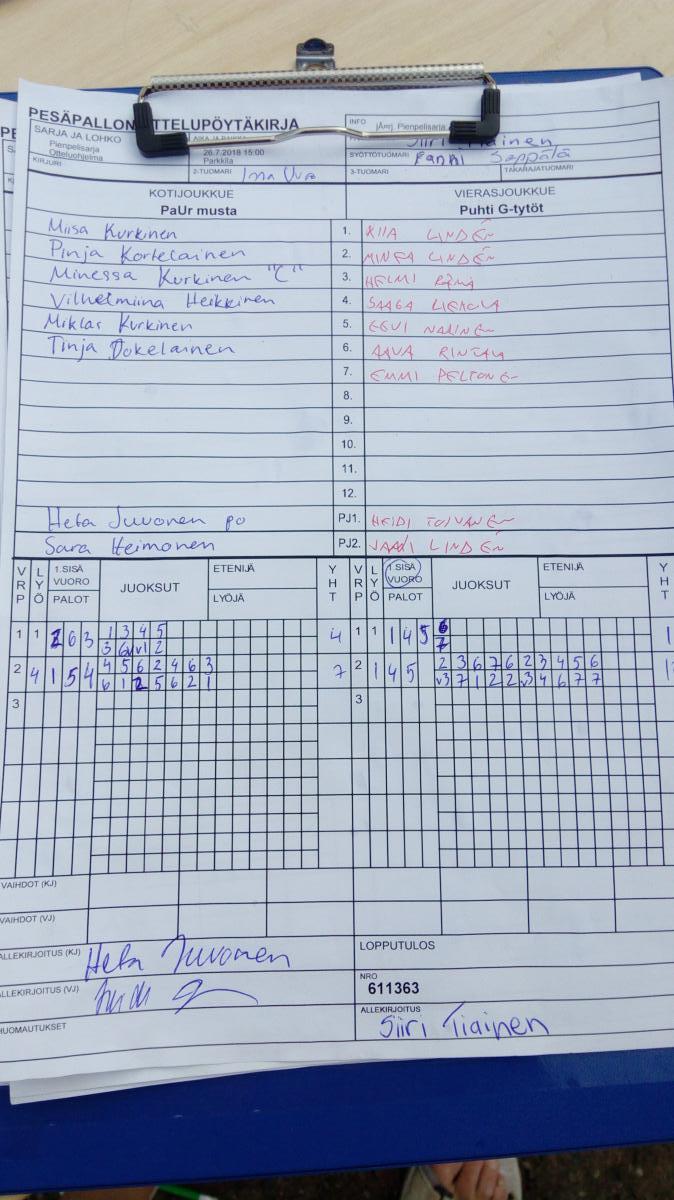 PESÄPALLON OTTELUPÖYTÄKIRJA
SARJA JA LOHKO
Pienpelisarja
Otteluohjelma
AIKA JA PAIKKA
26.7.2018 15:00
Parkkila
INFO
Pienpelisarja
Siiri Tiainen
KIRJURI
2-TUOMARI
SYÖTTÖTUOMARI Fanni Seppälä
3-TUOMARI
TAKARAJATUOMARI
KOTIJOUKKUE
PaUr musta
VIERASJOUKKUE
Puhti G-tytöt
Miisa Kurkinen 1. KIIA LINDÉN
Pinja Kortelainen 2. MINEA LINDÉN
Minessa Kurkinen "C" 3. HELMI RÄMÄ
Vilhelmiina Heikkinen 4. SAAGA
Miklas Kurkinen 5. EEVI
Tinja Tokelainen 6. AAVA RINTALA
7. EMMI PELTONEN
8.
9.
10.
11.
12.
Heta Juvonen po PJ1. HEIDI TOIVANEN
Sara Heimonen PJ2. LINDÉN
VRP LYÖ 1.SISÄ VUORO PALOT JUOKSUT ETENIJÄ LYÖJÄ YHT VRP LYÖ 1.SISÄ VUORO PALOT JUOKSUT ETENIJÄ LYÖJÄ YHT
1 1 2 6 3 1 3 4 5 4 1 1 1 4 5 6 1
3 6 v v1 2 7
2 4 1 5 4 4 5 6 2 4 6 3 7 2 1 4 5 2 3 6 7 6 2 3 4 5 6
6 1 2 5 6 2 1 v3 7 1 2 2 v3 4 6 7 7
3 3
VAIHDOT (KJ)
VAIHDOT (VJ)
ALLEKIRJOITUS (KJ) Heta Juvonen
LOPPUTULOS
ALLEKIRJOITUS (VJ)
NRO
611363
HUOMAUTUKSET
ALLEKIRJOITUS
Siiri Tiainen